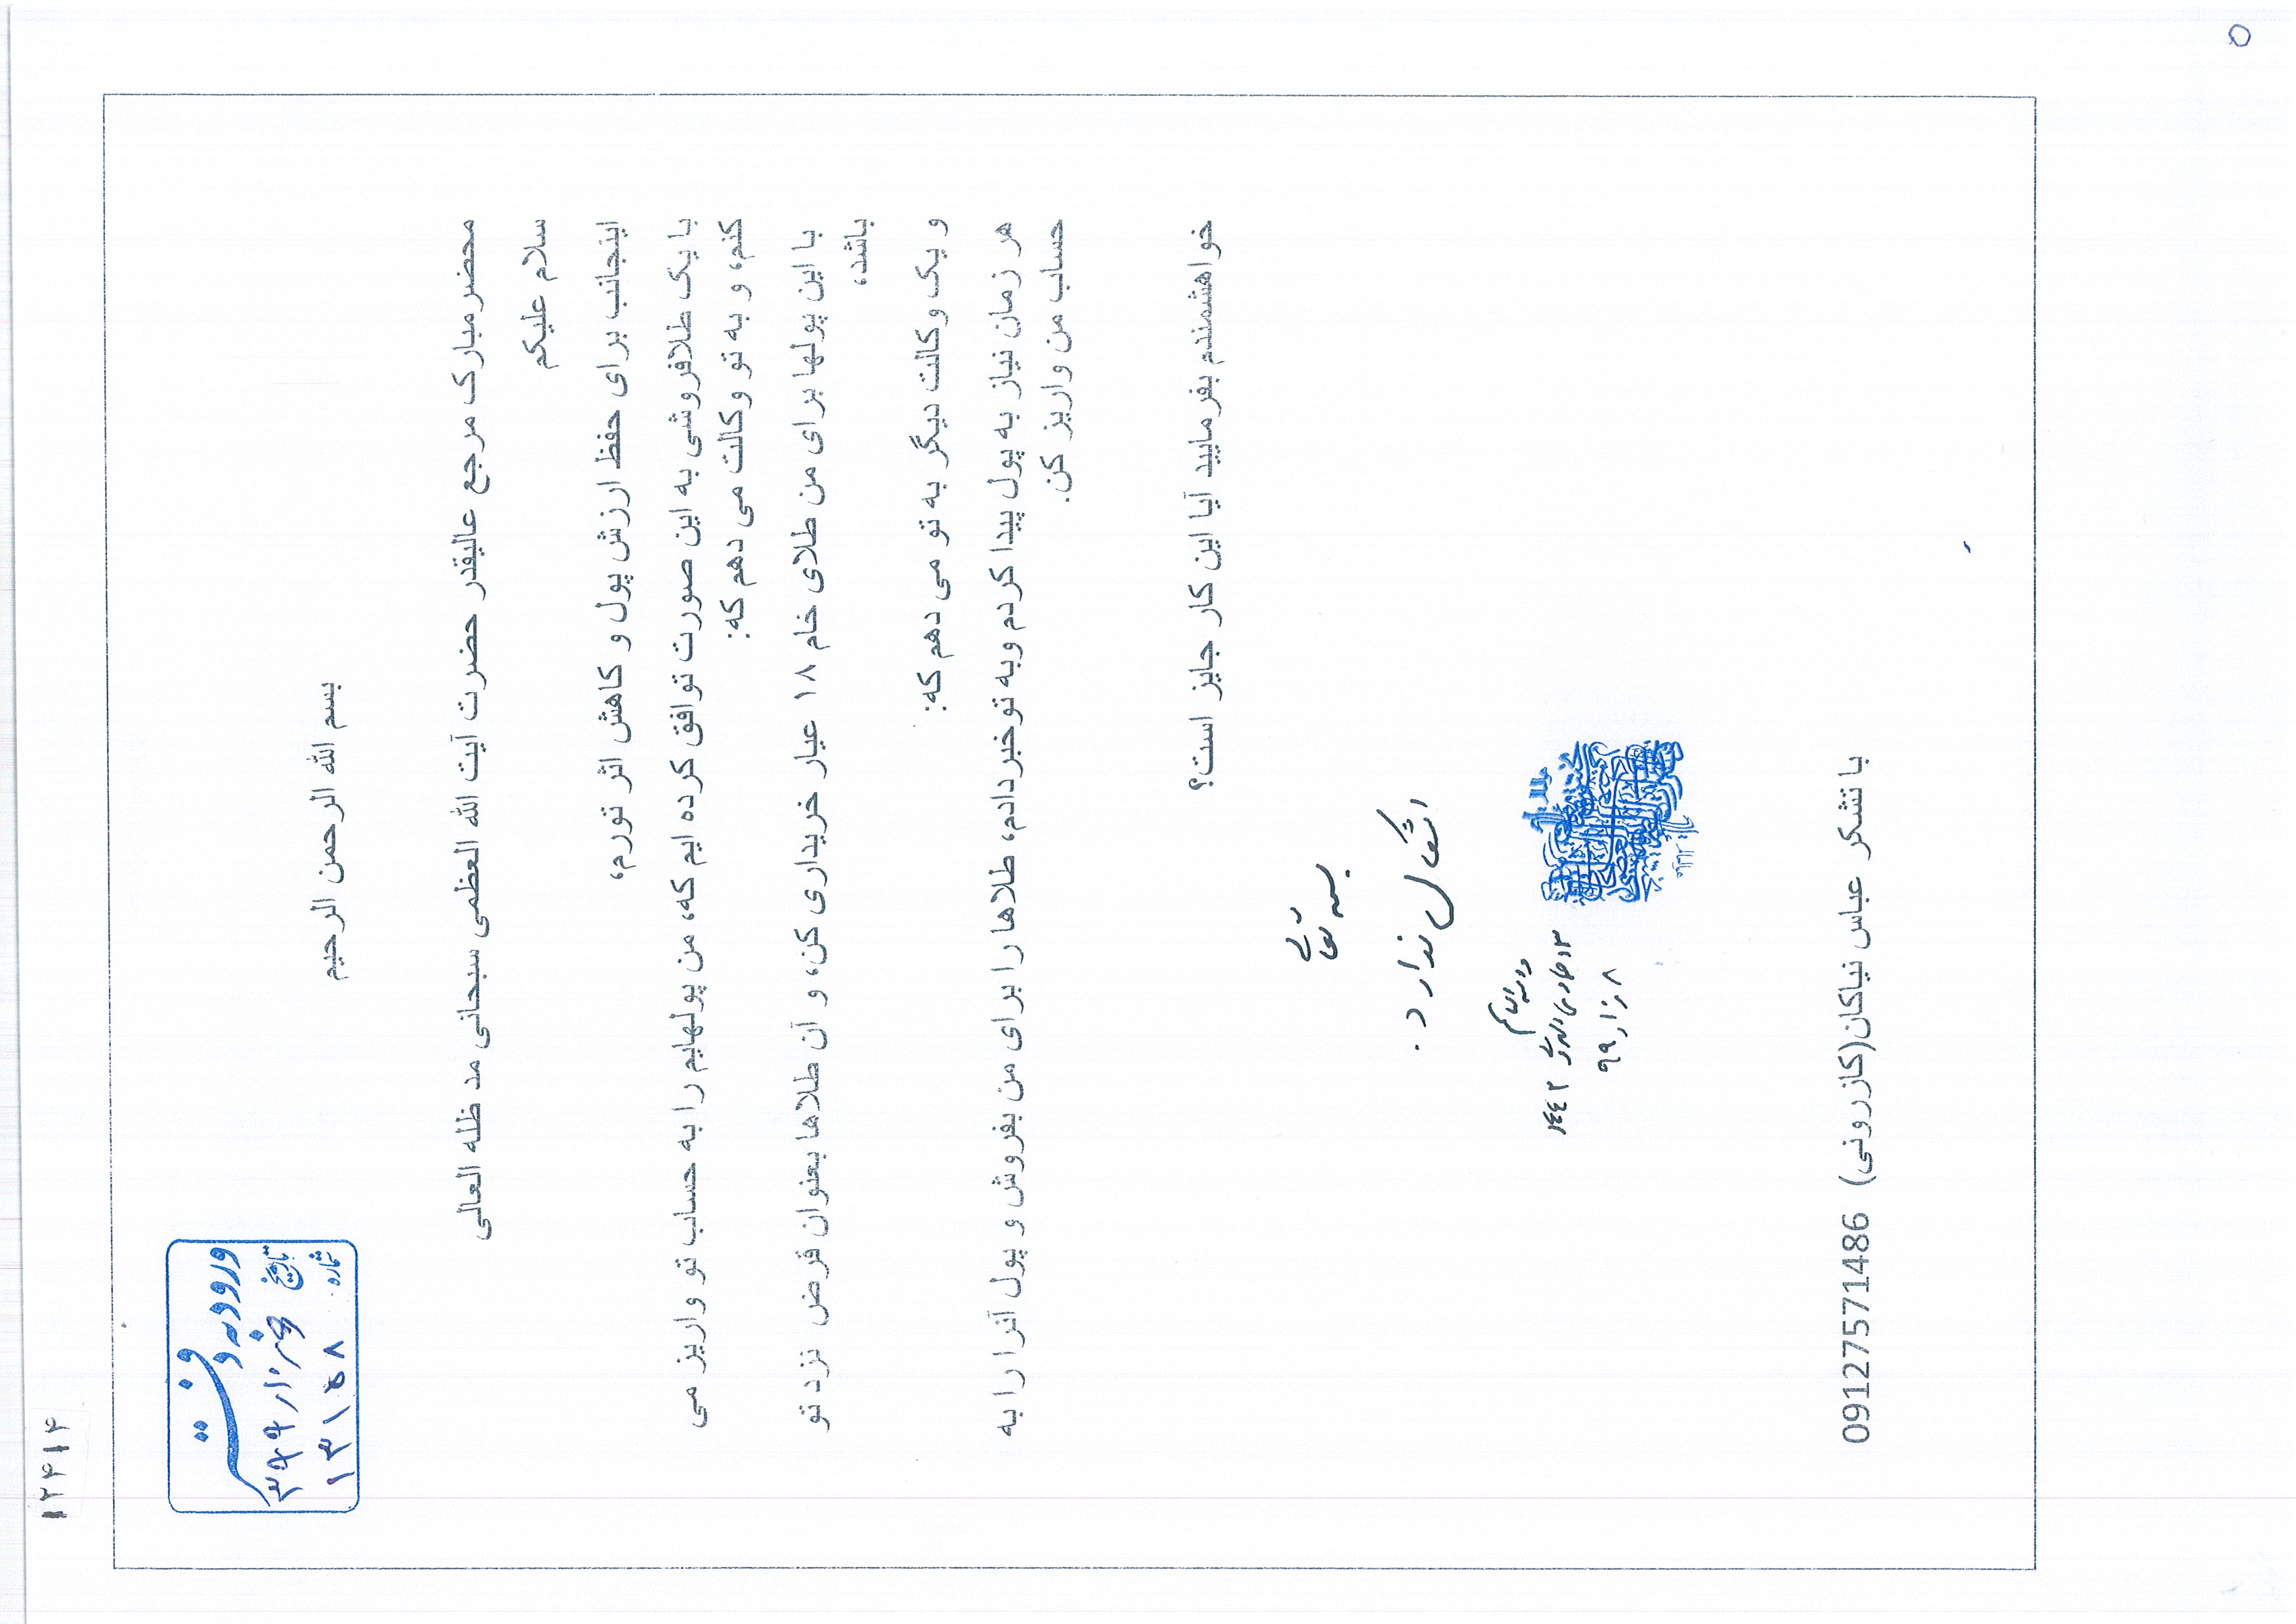 ۱۲۴۱۴
ورود به دفتر
تاریخ
شماره ۱۳۱۵۸
بسم الله الرحمن الرحیم
محضر مبارک مرجع عالیقدر حضرت آیت الله العظمی سبحانی مد ظله العالی
سلام علیکم
اینجانب برای حفظ ارزش پول و کاهش اثر تورم،
با یک طلافروشی به این صورت توافق کرده ایم که، من پولهایم را به حساب تو واریز می
کنم، و به تو وکالت می دهم که:
با این پولها برای من طلای خام ۱۸ عیار خریداری کن، و آن طلاها بعنوان قرض نزد تو
باشد،
و یک وکالت دیگر به تو می دهم که:
هر زمان نیاز به پول پیدا کردم وبه تو خبر دادم، طلاها را برای من بفروش و پول آنرا را به
حساب من واریز کن.
خواهشمندم بفرمایید آیا این کار جایز است؟
بسمه تعالی
اشکال ندارد.
والله العالم
۱۴۴۲
با تشکر عباس نیاکان(کازرونی) 09127571486